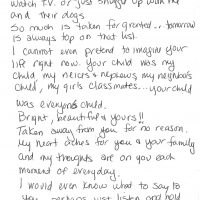 Watch T.V. or just snuggle up with me
and their dogs.
So much is taken for granted... tomorrow
is always top on that list.
I cannot even pretend to imagine your
life right now. Your child was my
child, my neices & nephews, my neighbors
child, my girl's classmates... your child
was everyones child.
Bright, beautiful & yours!!
Taken away from you for no reason.
My heart aches for you & your family
and my thoughts are on you each
moment of everyday.
I would even know what to say to
you perhaps just listen and hold